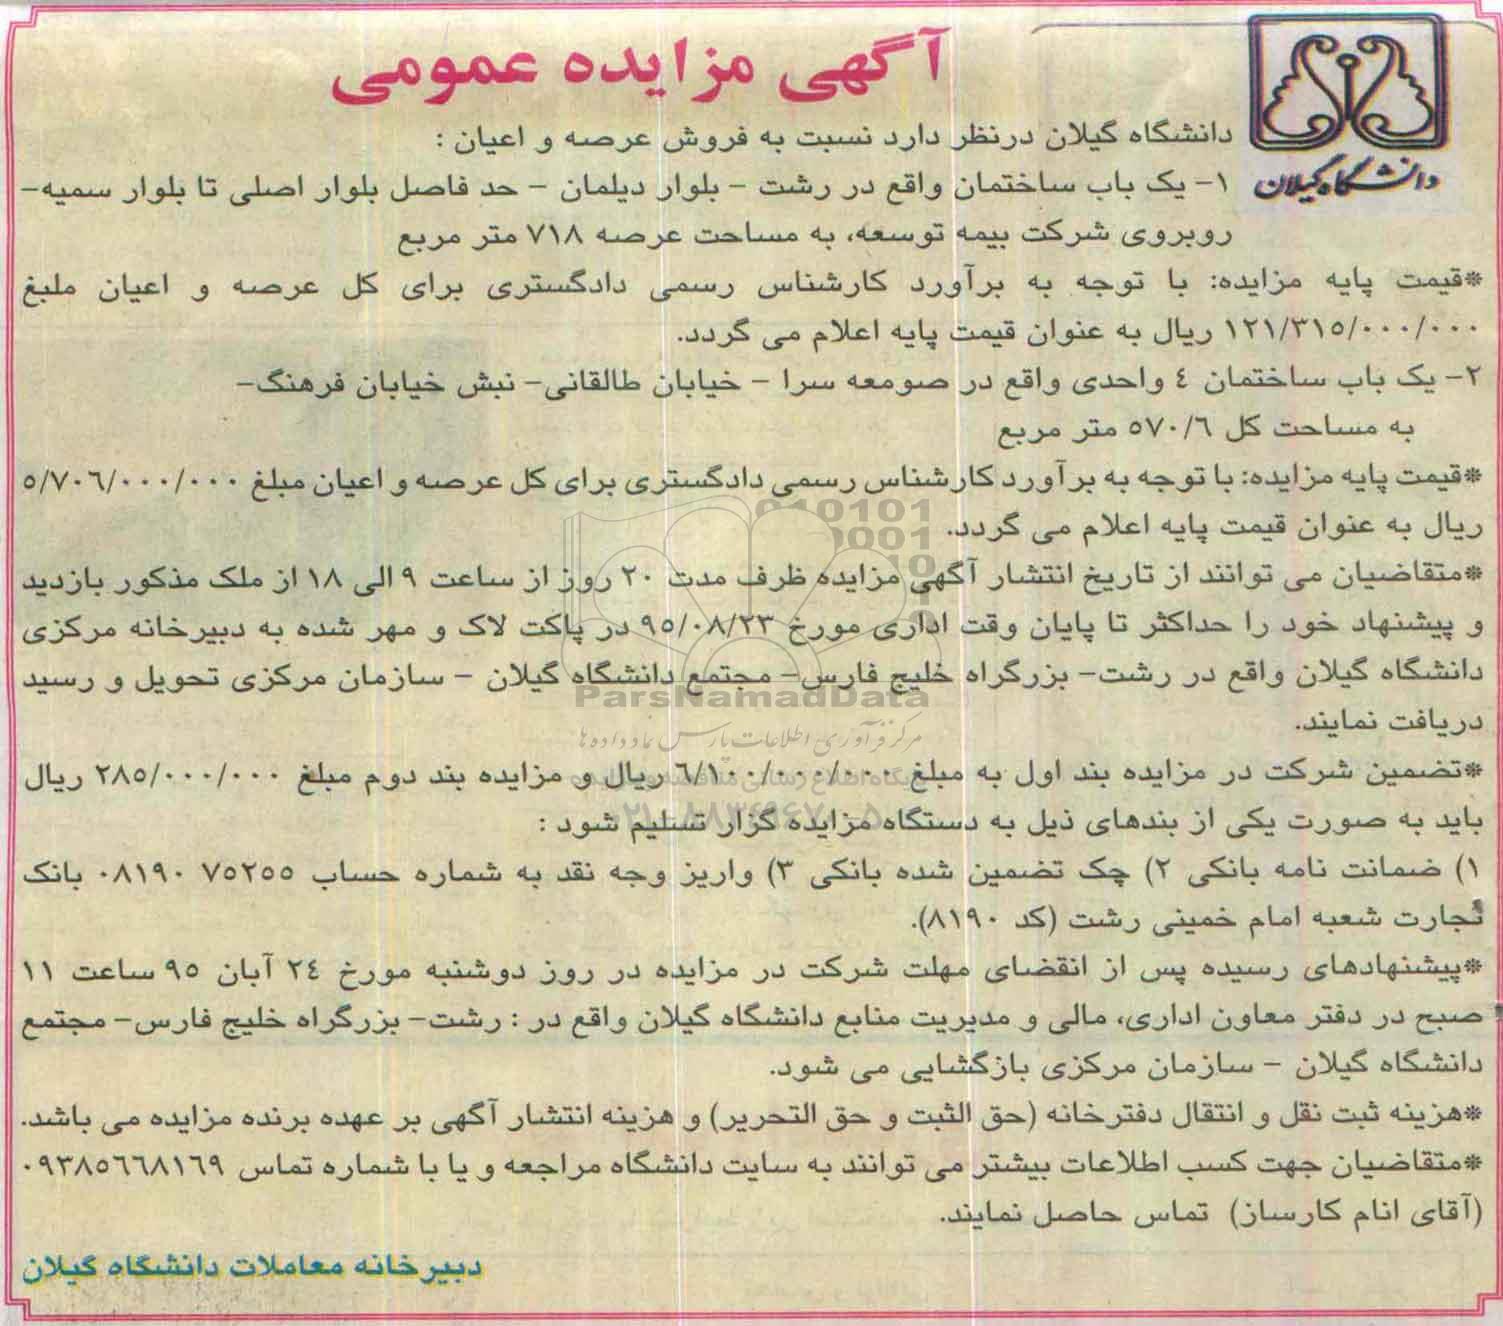 آگهی مزایده عمومی
دانشگاه گیلان
دانشگاه گیلان درنظر دارد نسبت به فروش عرصه و اعیان :
۱- یک باب ساختمان واقع در رشت - بلوار دیلمان - حد فاصل بلوار اصلی تا بلوار سمیه-
روبروی شرکت بیمه توسعه، به مساحت عرصه ۷۱۸ متر مربع
*قیمت پایه مزایده: با توجه به برآورد کارشناس رسمی دادگستری برای کل عرصه و اعیان ملبغ
۱۲۱/۳۱۵/۰۰۰/۰۰۰ ریال به عنوان قیمت پایه اعلام می گردد.
۲- یک باب ساختمان ٤ واحدی واقع در صومعه سرا - خیابان طالقانی- نبش خیابان فرهنگ-
به مساحت کل ۵۷۰/٦ متر مربع
*قیمت پایه مزایده: با توجه به برآورد کارشناس رسمی دادگستری برای کل عرصه و اعیان مبلغ ۵/۷۰٦/۰۰۰/۰۰۰
ریال به عنوان قیمت پایه اعلام می گردد.
*متقاضیان می توانند از تاریخ انتشار آگهی مزایده ظرف مدت ۲۰ روز از ساعت ۹ الی ۱۸ از ملک مذکور بازدید
و پیشنهاد خود را حداکثر تا پایان وقت اداری مورخ ۹۵/۰۸/۲۳ در پاکت لاک و مهر شده به دبیرخانه مرکزی
دانشگاه گیلان واقع در رشت- بزرگراه خلیج فارس- مجتمع دانشگاه گیلان - سازمان مرکزی تحویل و رسید
ParsNamadData
دریافت نمایند.
مرکز فرآوری اطلاعات پارس نماد داده ها
*تضمین شرکت در مزایده بند اول به مبلغ ٦/۱۰۰/۰۰۰/۰۰۰ ریال و مزایده بند دوم مبلغ ۲۸۵/۰۰۰/۰۰۰ ریال
باید به صورت یکی از بندهای ذیل به دستگاه مزایده گزار تسلیم شود :
۱) ضمانت نامه بانکی ۲) چک تضمین شده بانکی ۳) واریز وجه نقد به شماره حساب ۷۵۲۵۵ ۰۸۱۹۰ بانک
تجارت شعبه امام خمینی رشت (کد ۸۱۹۰).
*پیشنهادهای رسیده پس از انقضای مهلت شرکت در مزایده در روز دوشنبه مورخ ۲٤ آبان ۹۵ ساعت ۱۱
صبح در دفتر معاون اداری، مالی و مدیریت منابع دانشگاه گیلان واقع در : رشت- بزرگراه خلیج فارس- مجتمع
دانشگاه گیلان - سازمان مرکزی بازگشایی می شود.
*هزینه ثبت نقل و انتقال دفترخانه (حق الثبت و حق التحریر) و هزینه انتشار آگهی بر عهده برنده مزایده می باشد.
*متقاضیان جهت کسب اطلاعات بیشتر می توانند به سایت دانشگاه مراجعه و یا با شماره تماس ۰۹۳۸۵٦٦۸۱٦۹
(آقای انام کارساز) تماس حاصل نمایند.
دبیرخانه معاملات دانشگاه گیلان